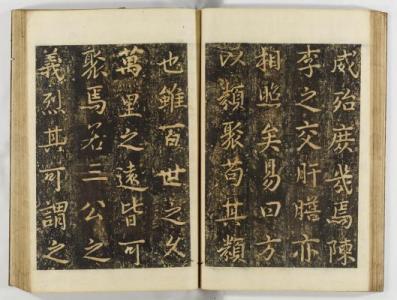 威殆庶幾焉陳
李之交肝膽亦
相照矣易曰方
以類聚苟其類
也雖百世之久
萬里之遠皆可
聚焉若三公之
義烈其可謂之